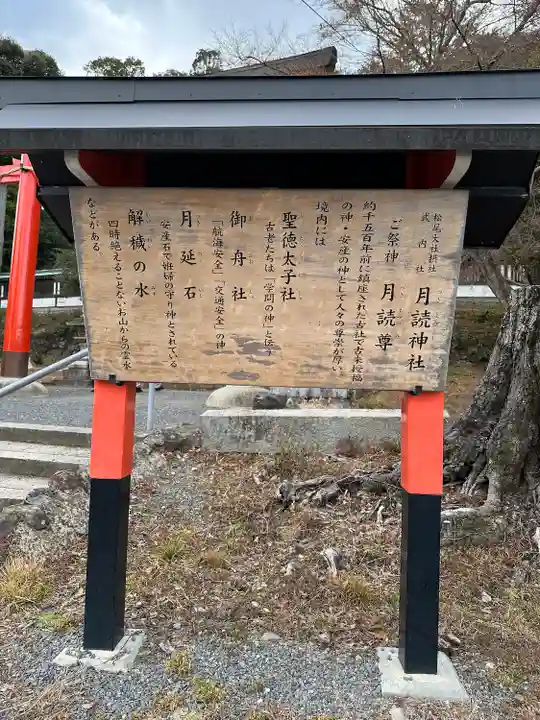 松尾大社摂社
式内社
月読神社
ご祭神 月読尊
約千五百年前に鎮座された古社で古来授福
の神・安産の神として人々の尊崇が厚い
境内には
聖徳太子社
古老たちは「学問の神」と伝う
御舟社
「航海安全」「交通安全」の神
月延石
安産石で妊婦の守り神とされている
解穢の水
四時絶えることないお山からの霊水
などがある